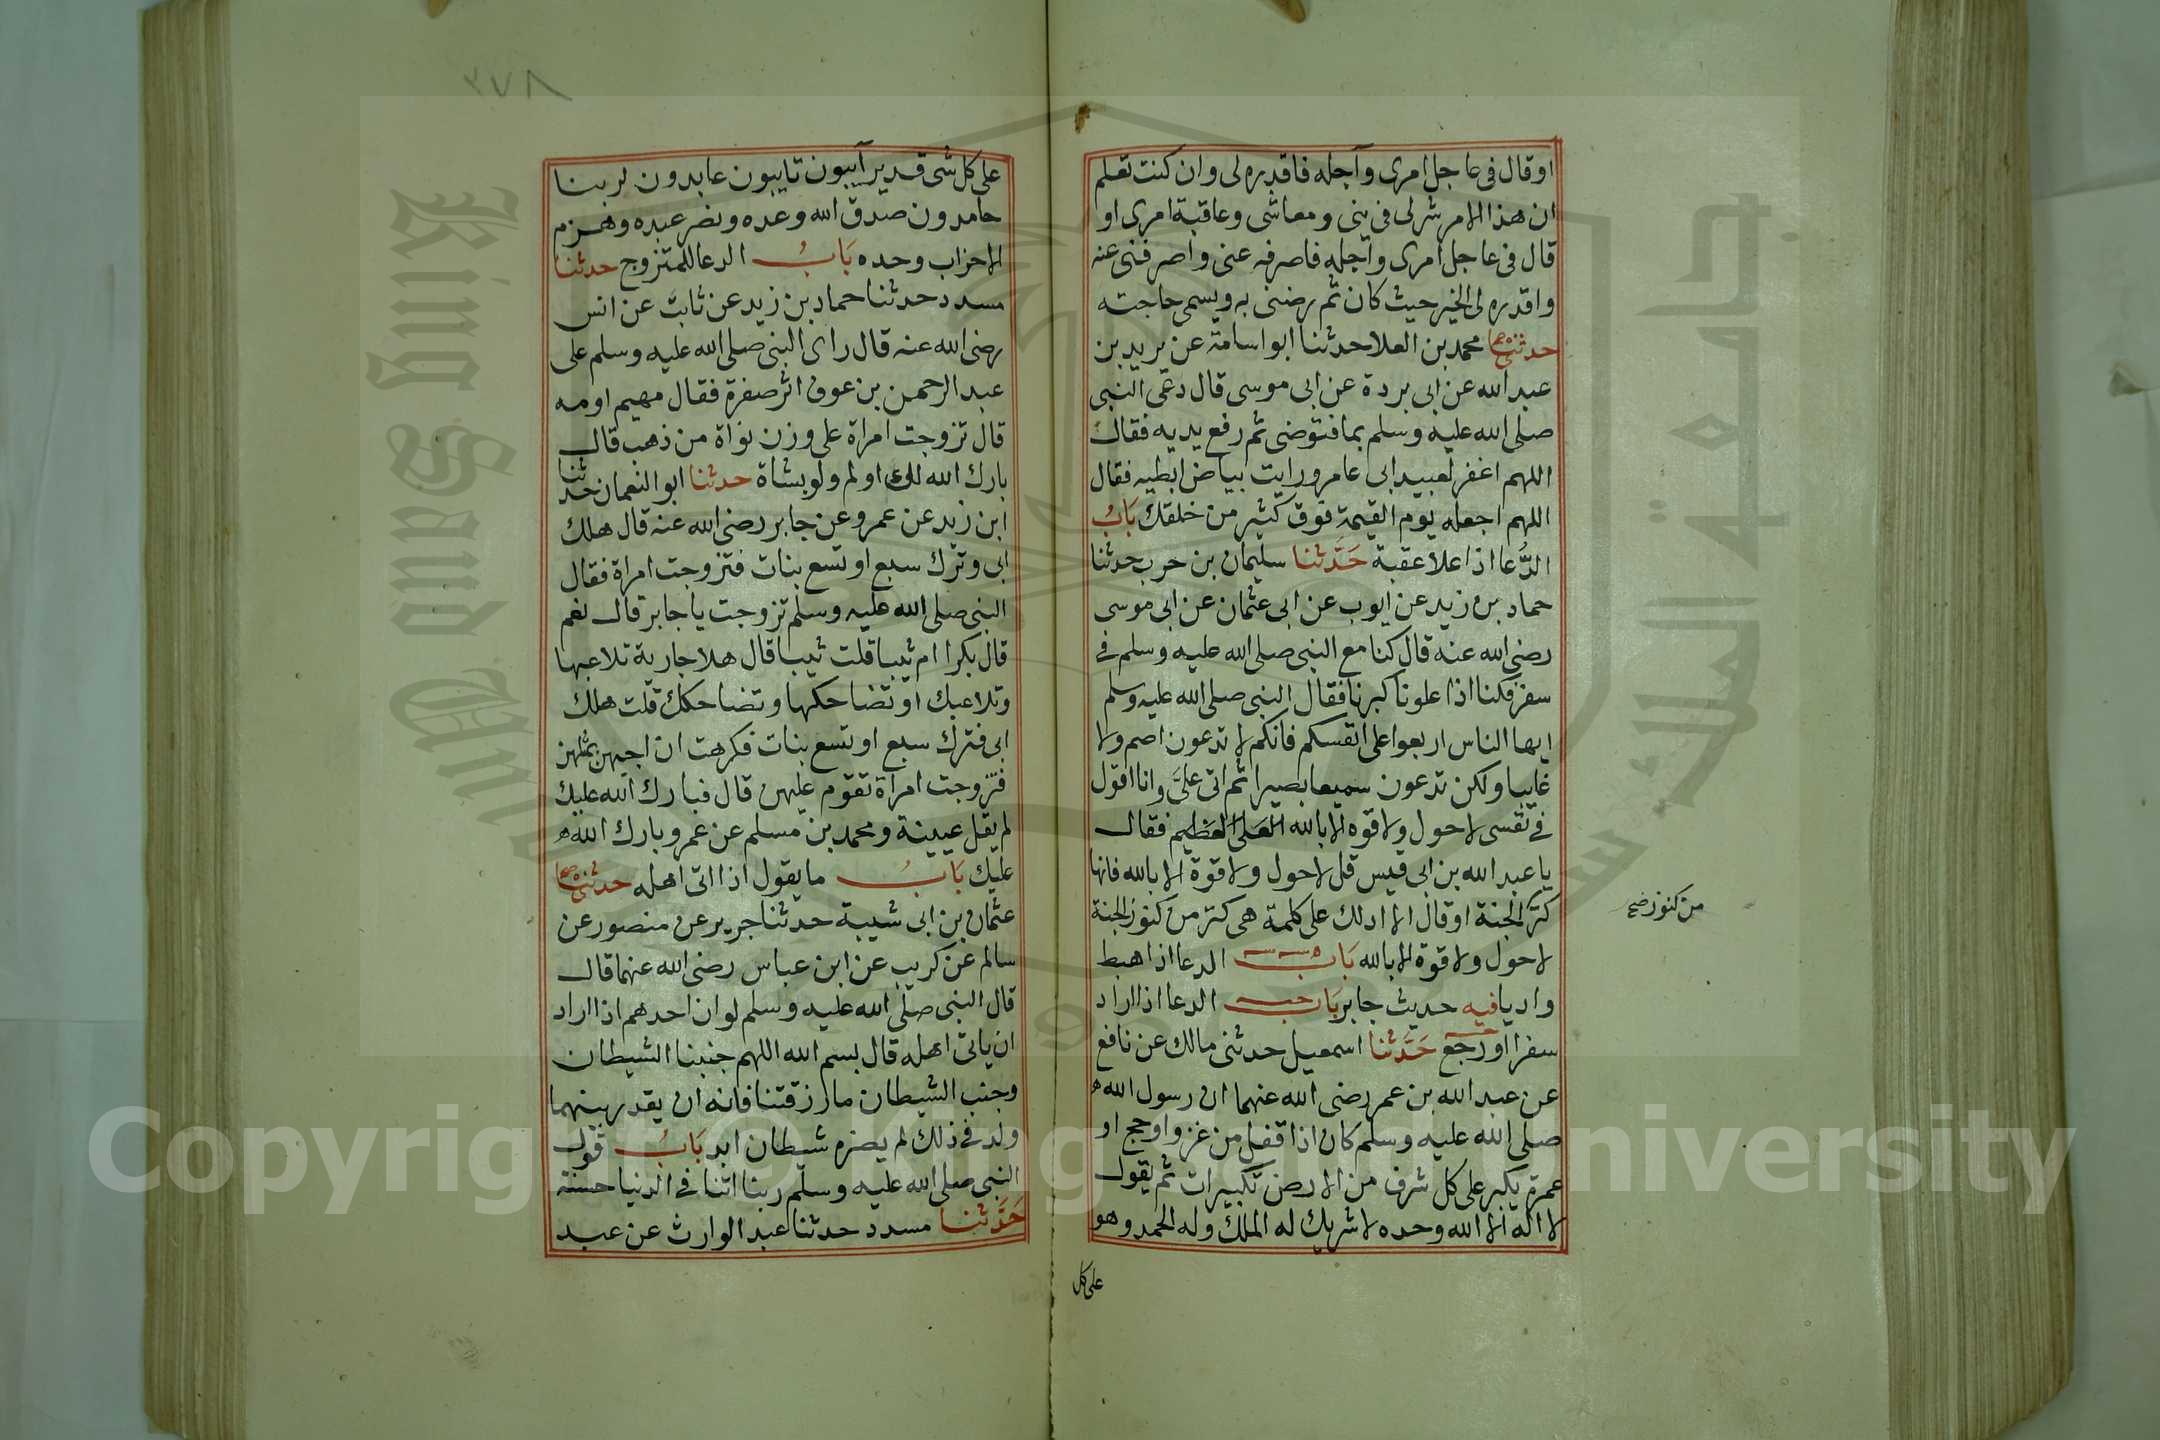 او قال فى عاجل امرى وآجله فاقدره لى وان كنت تعلم
ان هذا الامر شر لى فى ينى ومعاشى وعاقبة امرى او
قال فى عاجل امرى وآجله فاصرفه عنى واصرفنى عنه
واقدره لى الخير حيث كان ثم رضنى به ويسمى حاجته
حدثنى محمد بن العلا حدثنا ابو اسامة عن بريد بن
عبد الله عن ابى بردة عن ابى موسى قال دعى النبى
صلى الله عليه وسلم بما فتوضى ثم رفع يديه فقال
اللهم اغفر لعبيد ابى عامر ورايت بياض ابطيه فقال
اللهم اجعله يوم القيمة فوق كثير من خلقك باب
الدُّعا اذا علا عقبة حَدَّثنا سليمان بن حرب حدثنا
حماد بن زيد عن ايوب عن ابى عثمان عن ابى موسى
رضى الله عنه قال كنا مع النبى صلى الله عليه وسلم فى
سفر فكنا اذا علونا كبرنا فقال النبى صلى الله عليه وسلم
ايها الناس اربعوا على انفسكم فانكم لا تدعون اصم ولا
غايبا ولكن تدعون سميعا بصيرا ثم اتى علىَّ وانا اقول
فى نفسى لا حول ولا قوه الا بالله العلى العظيم فقال
يا عبد الله بن ابى قيس قل لا حول ولا قوة الا بالله فانها
كنز الجنة او قال الا ادلك على كلمة هى كنز من كنوز الجنة
من كنوز صح
لا حول ولا قوة الا بالله باب الدعا اذا هبط
واديا فيه حديث جابر باب الدعا اذا اراد
سفرا او رجع حَدَّثنا اسمعيل حدثنى مالك عن نافع
عن عبد الله بن عمر رضى الله عنهما ان رسول الله
صلى الله عليه وسلم كان اذا قفل من غزو او حج او
عمرة يكبر على كل شرف من الارض تكبيرات ثم يقول
لا اله الا الله وحده لا شريك له الملك وله الحمد وهو
على كل
٣٧٨
على كل شى قدير آيبون تايبون عابدون لربنا
حامدون صدق الله وعده ونصر عبده وهزم
الاحزاب وحده بَابُ الدعا للمتزوج حدثنا
مسدد حدثنا حماد بن زيد عن ثابت عن انس
رضى الله عنه قال راى النبى صلى الله عليه وسلم على
عبد الرحمن بن عوف اثر صفرة فقال مهيم او مه
قال تزوجت امراة على وزن نواة من ذهب قال
بارك الله لك اولم ولو بشاة حدثنا ابو النعمان حدثنا
ابن زيد عن عمرو عن جابر رضى الله عنه قال هلك
ابى وترك سبع او تسع بنات فتزوجت امراة فقال
النبى صلى الله عليه وسلم تزوجت يا جابر قال نعم
قال بكرا ام ثيبا قلت ثيبا قال هلا جارية تلاعبها
وتلاعبك او تضاحكها وتضاحكك قلت هلك
ابى فترك سبع او تسع بنات فكرهت ان اجيهن بمثلهن
فتزوجت امراة تقوم عليهن قال فبارك الله عليك
لم يقل عيينة ومحمد بن مسلم عن عمرو بارك الله
عليك بَابُ ما يقول اذا اتى اهله حدثنى
عثمان بن ابى شيبة حدثنا جرير عن منصور عن
سالم عن كريب عن ابن عباس رضى الله عنهما قال
قال النبى صلى الله عليه وسلم لو ان احدهم اذا اراد
ان ياتى اهله قال بسم الله اللهم جنبنا الشيطان
وجنب الشيطان ما رزقتنا فانه ان يقدر بينهما
ولد فى ذلك لم يضره شيطان ابد بَابُ قول
النبى صلى الله عليه وسلم ربنا اتنا فى الدنيا حسنة
حَدَّثنا مسدد حدثنا عبد الوارث عن عبد
Copyright © King Saud University
King Saud University
جامعة الملك سعود